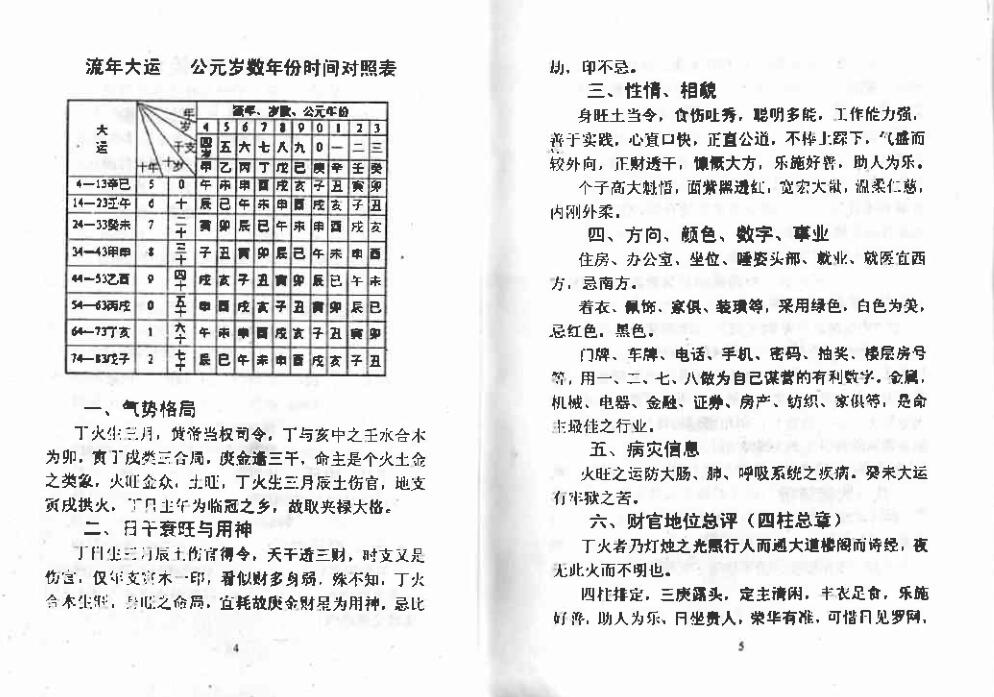 流年大运 公元岁数年份时间对照表
大运 年岁 干支 十年 十岁 流年、岁数、公元年份
4 5 6 7 8 9 0 1 2 3
四岁 五 六 七 八 九 0 一 二 三
甲 乙 丙 丁 戊 己 庚 辛 壬 癸
4—13辛巳 5 0 午 未 申 酉 戌 亥 子 丑 寅 卯
14—23壬午 6 十 辰 巳 午 未 申 酉 戌 亥 子 丑
24—33癸未 7 二十 寅 卯 辰 巳 午 未 申 酉 戌 亥
34—43甲申 8 三十 子 丑 寅 卯 辰 巳 午 未 申 酉
44—53乙酉 9 四十 戌 亥 子 丑 寅 卯 辰 巳 午 未
54—63丙戌 0 五十 申 酉 戌 亥 子 丑 寅 卯 辰 巳
64—73丁亥 1 六十 午 未 申 酉 戌 亥 子 丑 寅 卯
74—83戊子 2 七十 辰 巳 午 未 申 酉 戌 亥 子 丑
一、气势格局
丁火生三月，黄帝当权司令，丁与亥中之壬水合木
为卯，寅丁戌类三合局，庚金透三干，命主是个火土金
之类象，火旺金众，土旺，丁火生三月辰土伤官，地支
寅戌拱火，丁日主午为临冠之乡，故取夹禄大格。
二、日干衰旺与用神
丁日生三月辰土伤官得令，天干透三财，时支又是
伤官，仅年支寅木一印，看似财多身弱，殊不知，丁火
合木生旺，身旺之命局，宜耗故庚金财星为用神，忌比
4
劫，印不忌。
三、性情、相貌
身旺土当令，食伤吐秀，聪明多能，工作能力强，
善于实践，心直口快，正直公道，不捧上踩下，气盛而
较外向，正财透干，慷慨大方，乐施好善，助人为乐。
个子高大魁悟，面紫黑透红，宽宏大量，温柔仁慈，
内刚外柔。
四、方向、颜色、数字、事业
住房、办公室、坐位、睡姿头部、就业、就医宜西
方，忌南方。
着衣、佩饰、家俱、装璜等，采用绿色，白色为美，
忌红色，黑色。
门牌、车牌、电话、手机、密码、抽奖、楼层房号
等，用一、二、七、八做为自己谋营的有利数字。金属，
机械、电器、金融、证券、房产、纺织、家俱等，是命
主最佳之行业。
五、病灾信息
火旺之运防大肠、肺、呼吸系统之疾病。癸未大运
有牢狱之苦。
六、财官地位总评（四柱总章）
丁火者乃灯烛之光照行人而通大道楼阁而诗经，夜
无此火而不明也。
四柱排定，三庚露头，定主清闲，丰衣足食，乐施
好善，助人为乐、日坐贵人，荣华有准，可惜日见罗网，
5